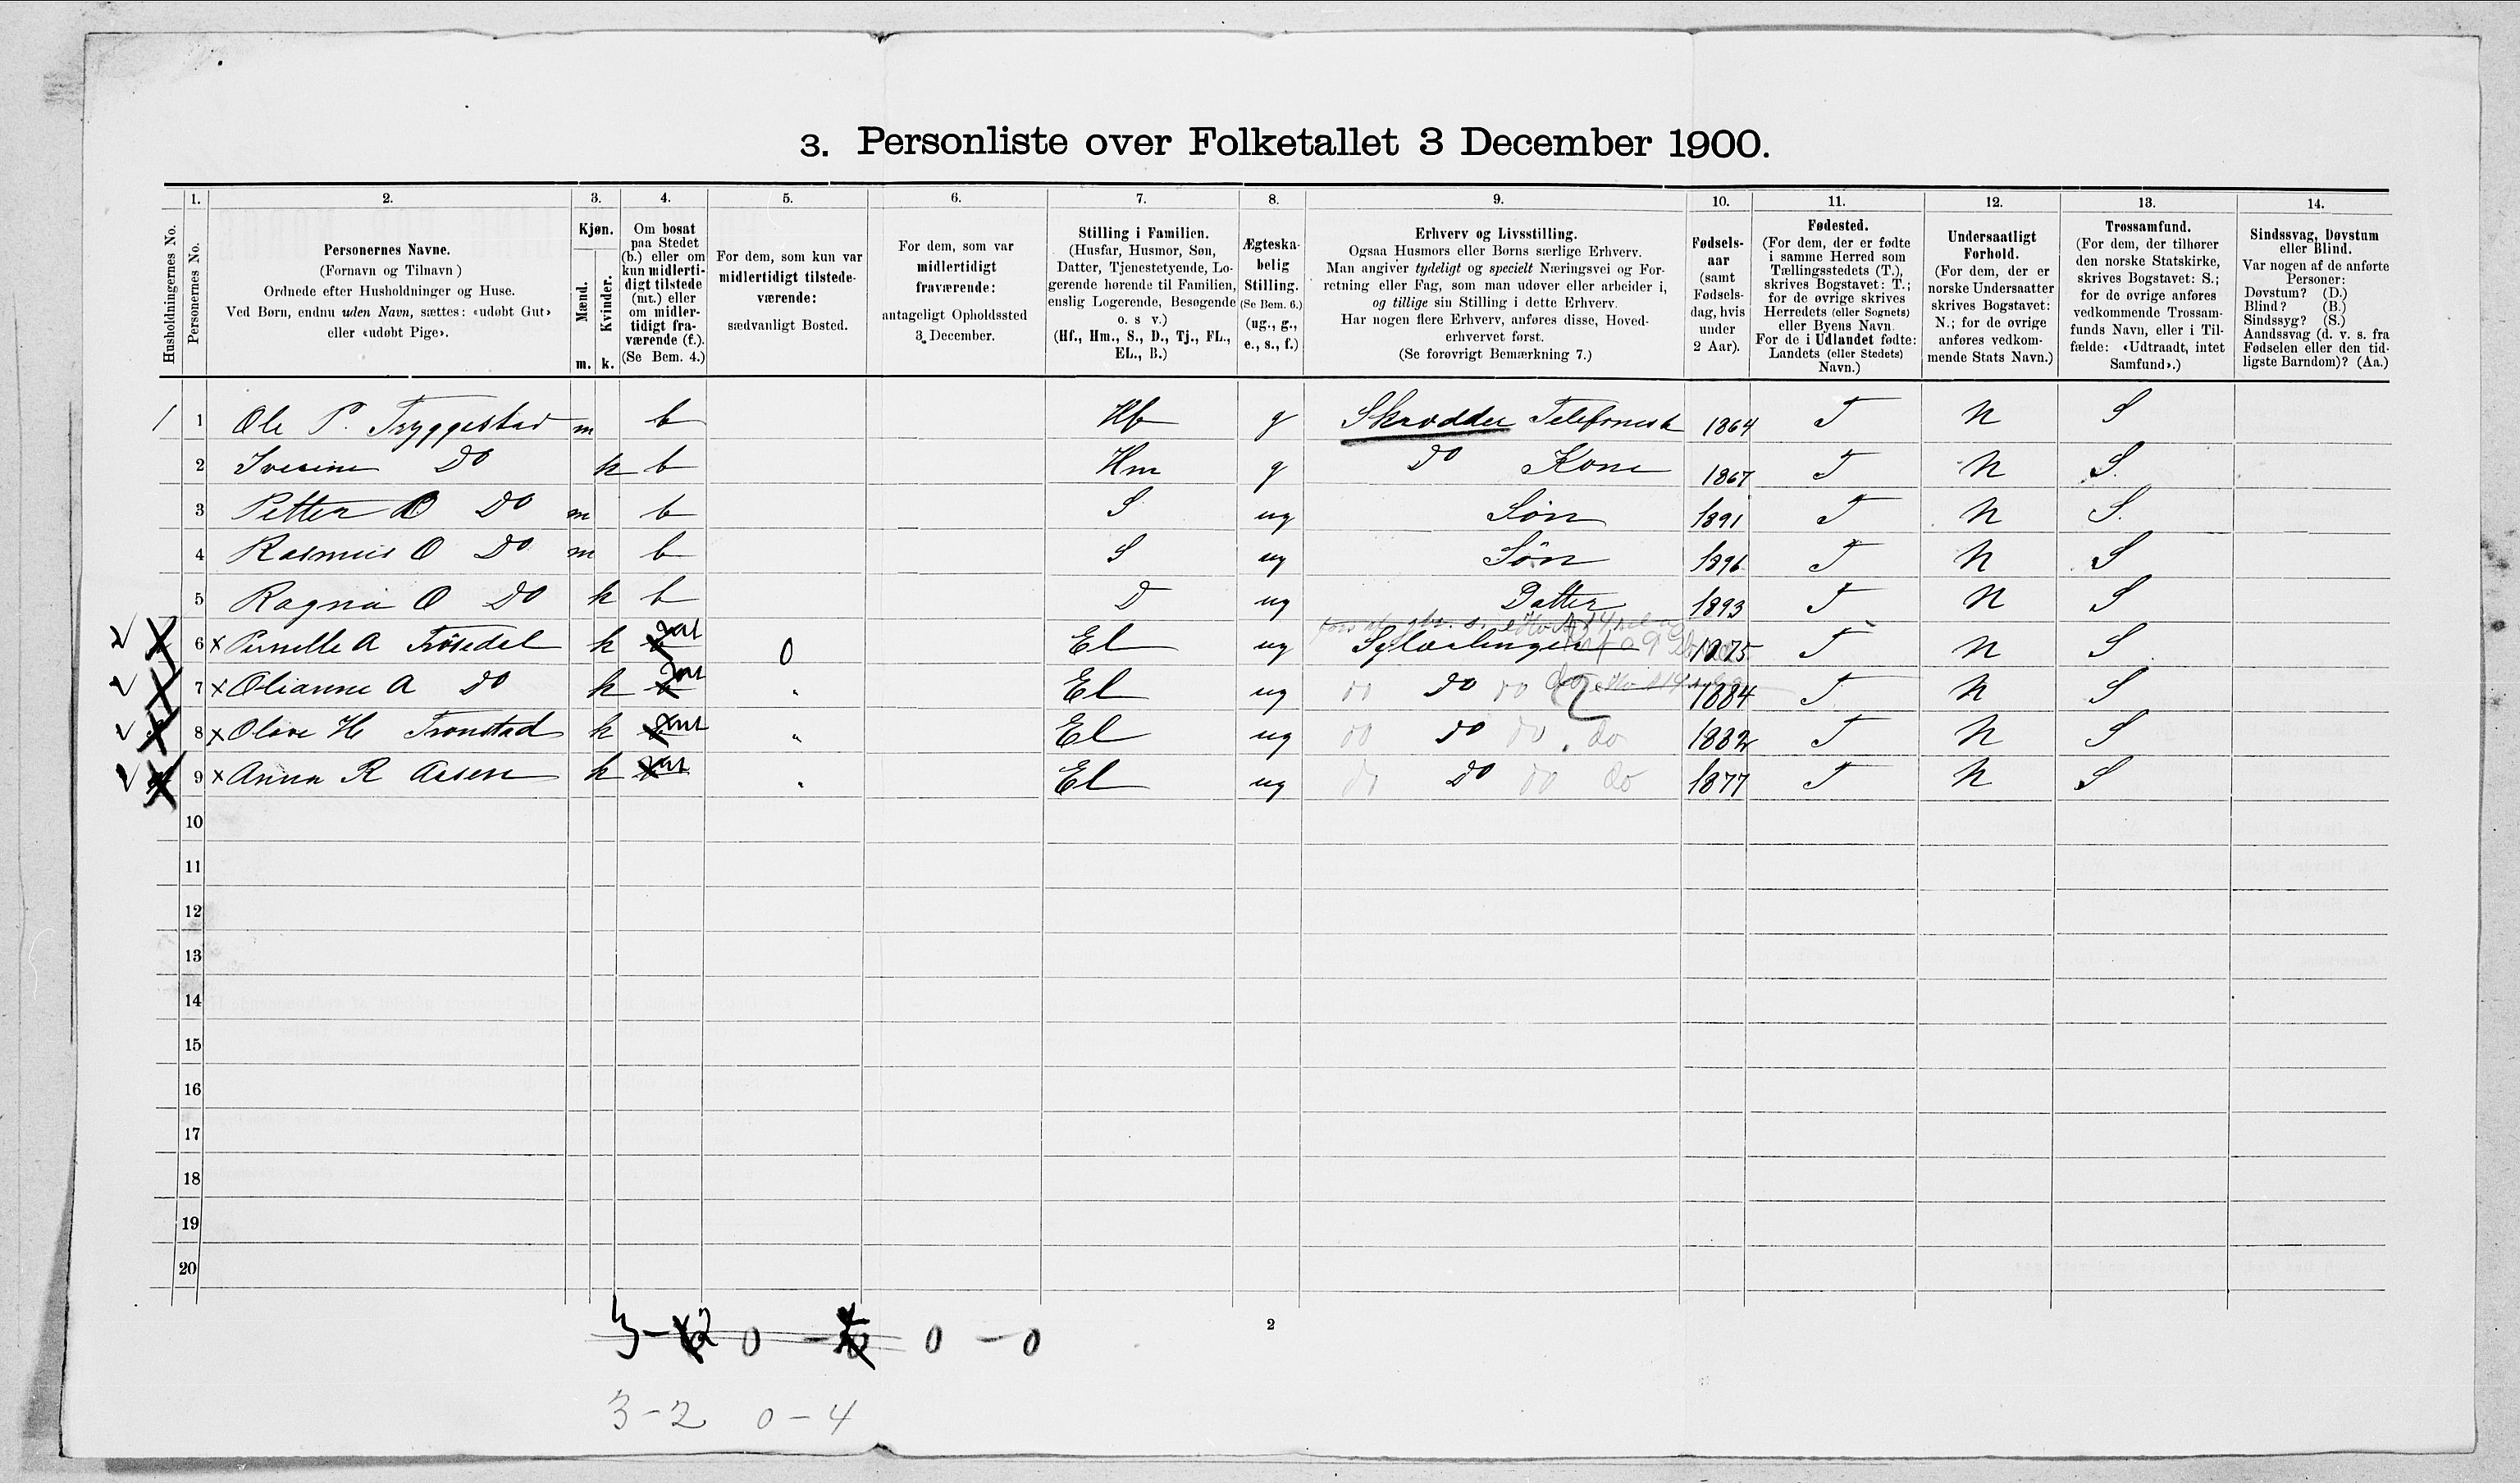 3. Personliste over Folketallet 3 December 1900.
1. 2. 3. 4. 5. 6. 7. 8. 9. 10. 11. 12. 13. 14.
Husholdningernes No.
Personernes No.
Personernes Navne.
(Fornavn og Tilnavn)
Ordnede efter Husholdninger og Huse.
Ved Børn, endnu uden Navn, sættes: «udøbt Gut»
eller «udøbt Pige».
Kjøn.
Mænd.
Kvinder.
m. k.
Om bosat
paa Stedet
(b.) eller om
kun midlerti-
digt tilstede
(mt.) eller
om midler-
tidigt fra-
værende (f.).
(Se Bem. 4.)
For dem, som kun var
midlertidigt tilstede-
værende:
sædvanligt Bosted.
For dem, som var
midlertidigt
fraværende:
antageligt Opholdssted
3. December.
Stilling i Familien.
(Husfar, Husmor, Søn,
Datter, Tjenestetyende, Lo-
gerende hørende til Familien,
enslig Logerende, Besøgende
o. s v.)
(Hf., Hm., S., D., Tj., FL.,
EL., B.)
Ægteska-
belig
Stilling.
(Se Bem. 6.)
(ug., g.,
e., s., f.)
Erhverv og Livsstilling.
Ogsaa Husmors eller Børns særlige Erhverv.
Man angiver tydeligt og specielt Næringsvei og For-
retning eller Fag, som man udøver eller arbeider i,
og tillige sin Stilling i dette Erhverv.
Har nogen flere Erhverv, anføres disse, Hoved-
erhvervet først.
(Se forøvrigt Bemærkning 7.)
Fødsels-
aar
(samt
Fødsels-
dag, hvis
under
2 Aar).
Fødested.
(For dem, der er fødte
i samme Herred som
Tællingsstedets (T.),
skrives Bogstavet: T.;
for de øvrige skrives
Herredets (eller Sognets)
eller Byens Navn.
For de i Udlandet fødte:
Landets (eller Stedets)
Navn.)
Undersaatligt
Forhold.
(For dem, der er
norske Undersaatter
skrives Bogstavet:
N.; for de øvrige
anføres vedkom-
mende Stats Navn.)
Trossamfund.
(For dem, der tilhører
den norske Statskirke,
skrives Bogstavet: S.;
for de øvrige anføres
vedkommende Trossam-
funds Navn, eller i Til-
fælde: «Udtraadt, intet
Samfund».)
Sindssvag, Døvstum
eller Blind.
Var nogen af de anførte
Personer:
Døvstum? (D.)
Blind? (B.)
Sindssyg? (S.)
Aandssvag (d. v. s. fra
Fødselen eller den tid-
ligste Barndom)? (Aa.)
1 1 Ole P. Tryggestad m b Hf g Skrædder Telefonist 1864 T N S
2 Ivesine Do k b Hm g Do Kone 1867 T N S.
3 Petter O Do m b S ug Søn 1891 T N S.
4 Rasmus O Do m b S ug Søn 1896 T N S
5 Ragna O Do k b D ug Datter 1893 T N S
6 x Pernille A Trøsedal k mt 0 El ug Sylærlinger 1875 T N S
7 x Olianne A Do k mt " El ug do Do do 1884 T N S
8 x Olave H Tronstad k mt " El ug do Do do do 1882 T N S
9 x Anna R Aasen k mt " El ug do Do do do 1877 T N S
10
11
12
13
14
15
16
17
18
19
20
3 - 2 0 - 0 - 0
2
3 - 2 0 - 4